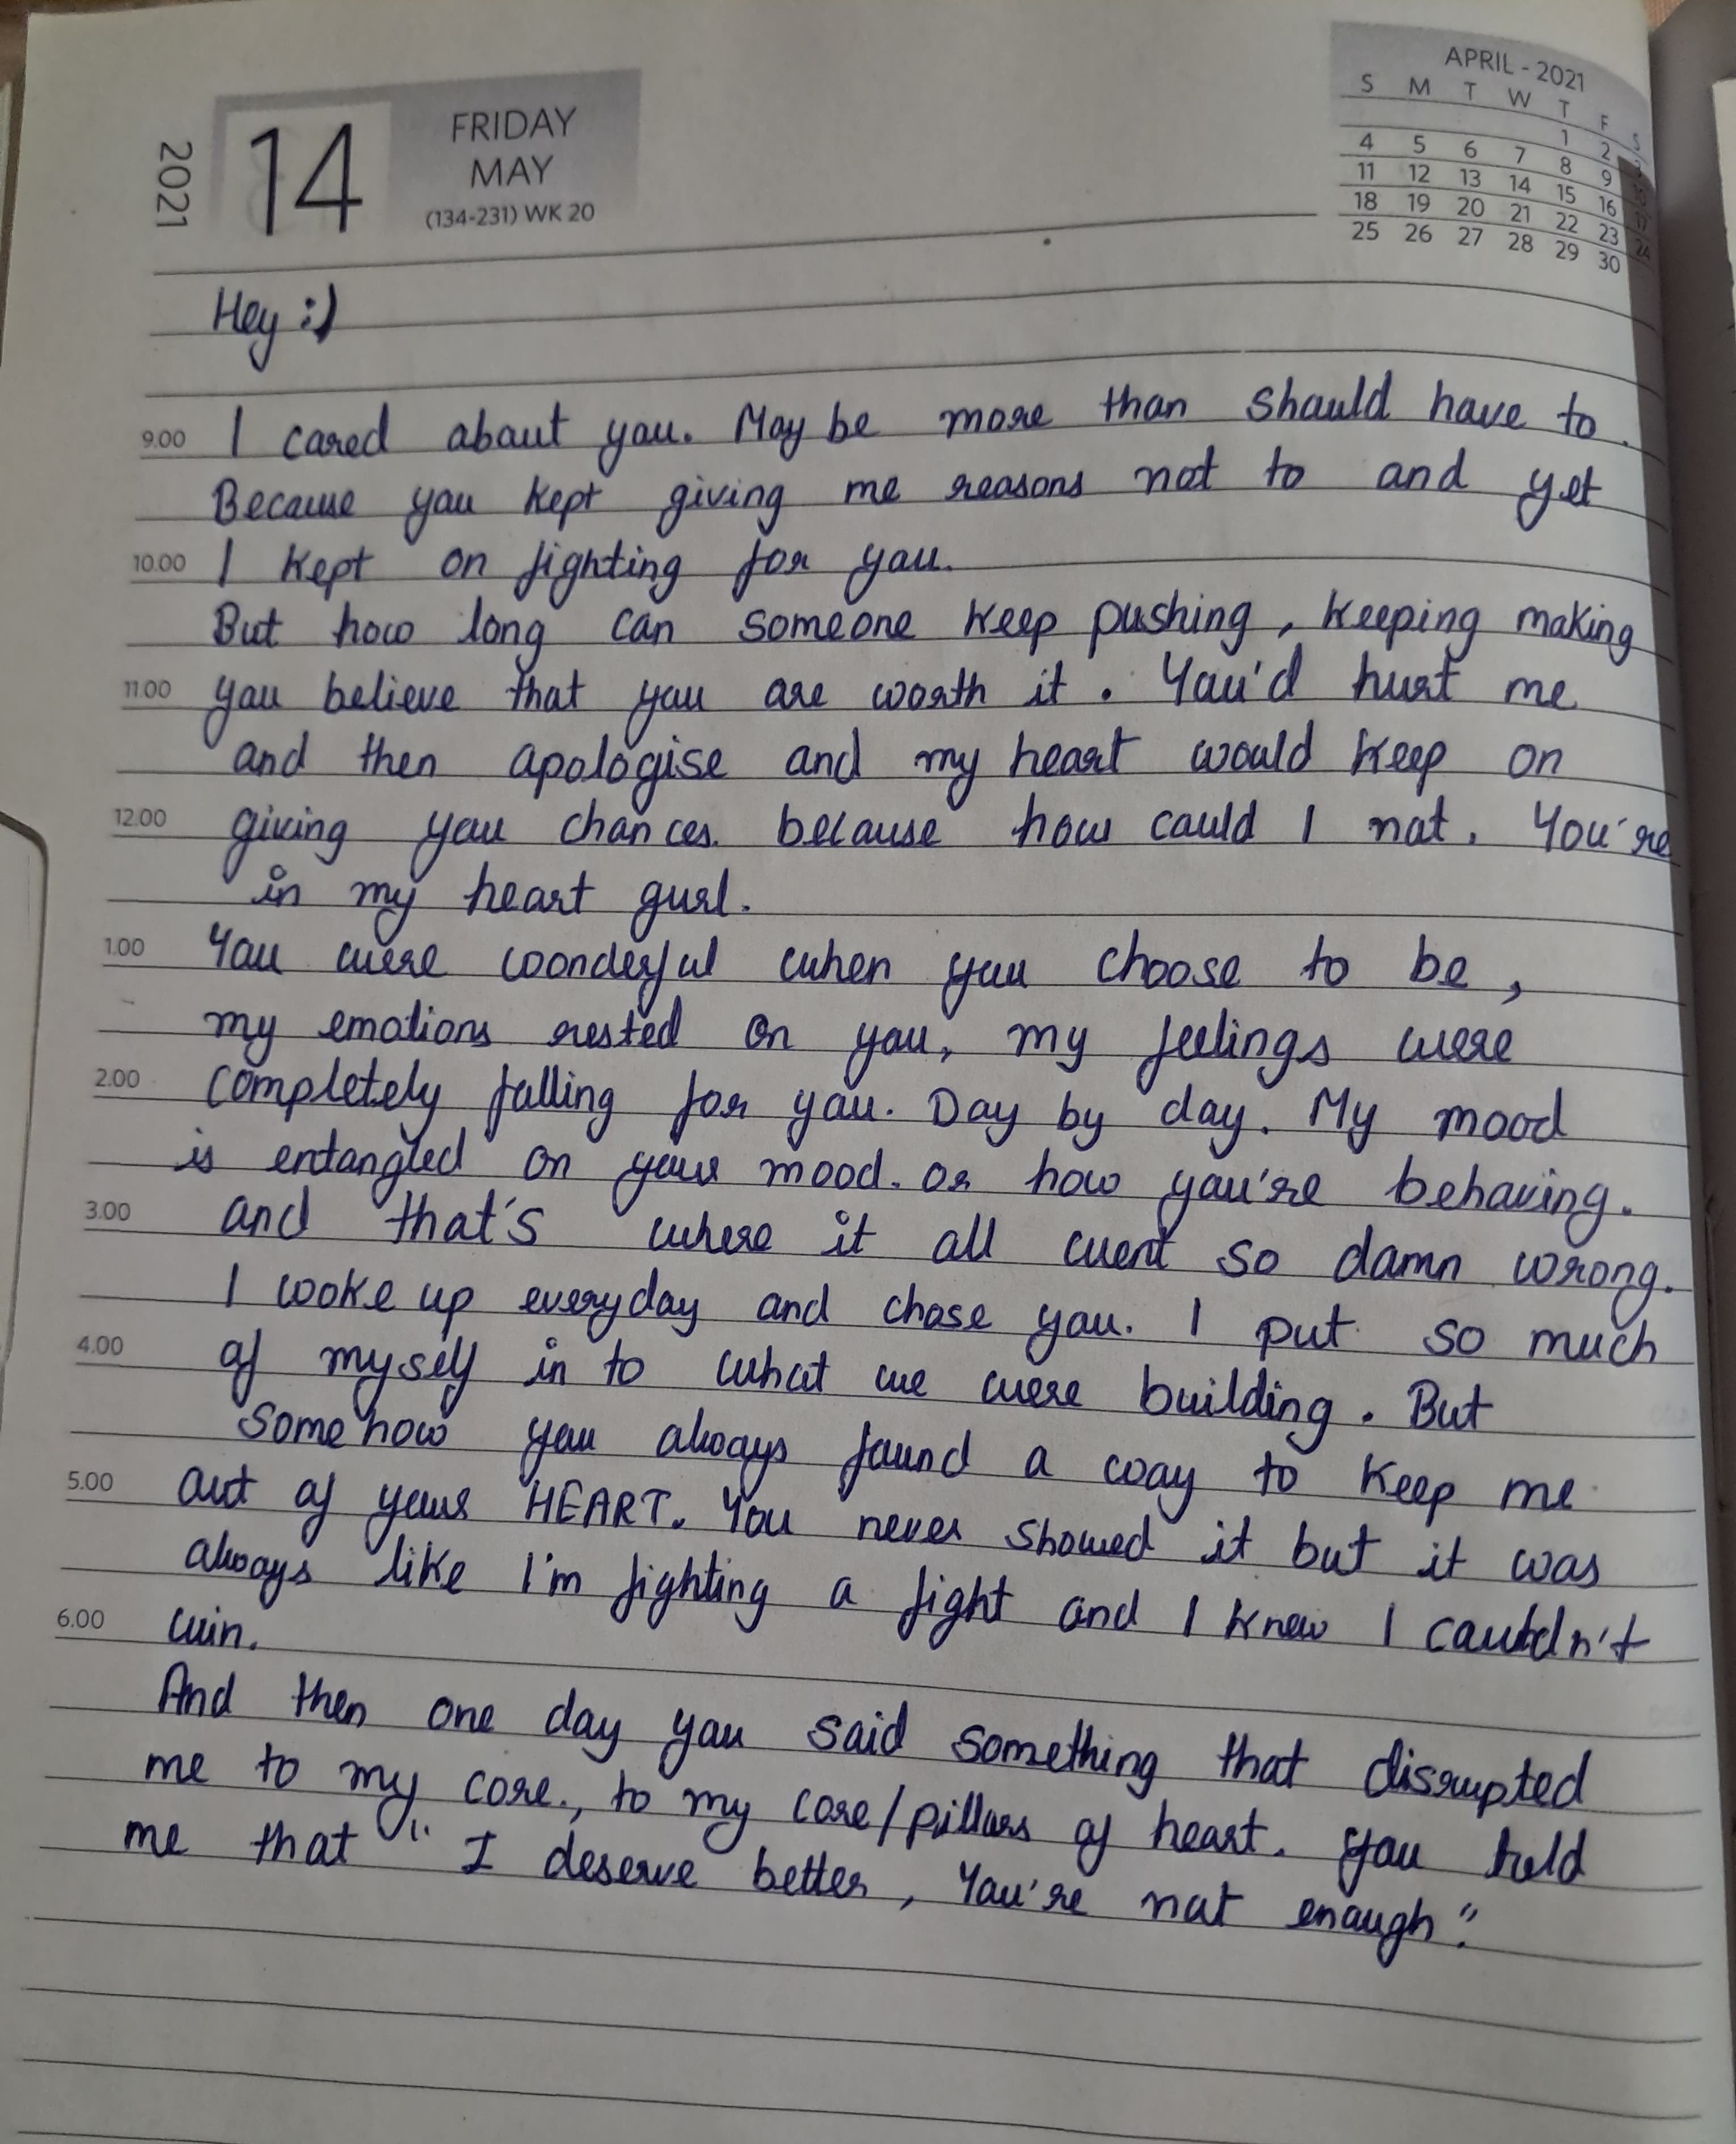 2021
14
FRIDAY
MAY
(134-231) WK 20
APRIL - 2021
S M T W T F S
1 2 3
4 5 6 7 8 9 10
11 12 13 14 15 16 17
18 19 20 21 22 23 24
25 26 27 28 29 30
Hey :)
9.00 I cared about you. May be more than should have to.
Because you kept giving me reasons not to and yet
10.00 I kept on fighting for you.
But how long can someone keep pushing, keeping making
11.00 you believe that you are worth it. You'd hurt me
and then apologise and my heart would keep on
12.00 giving you chances. because how could I not. You're
in my heart gurl.
1.00 You were woonderful when you choose to be,
my emotions rested on you, my feelings were
2.00 completely falling for you. Day by day. My mood
is entangled on your mood. or how you're behaving.
3.00 and that's where it all went so damn wrong.
I wooke up everyday and chose you. I put so much
4.00 of myself in to what we were building. But
somehow you always found a way to keep me
5.00 out of your HEART. You never showed it but it was
always like I'm fighting a fight and I knew I couldn't
6.00 win.
And then one day you said something that disrupted
me to my core., to my core/pillars of heart. you told
me that "I deserve better, You're not enough".